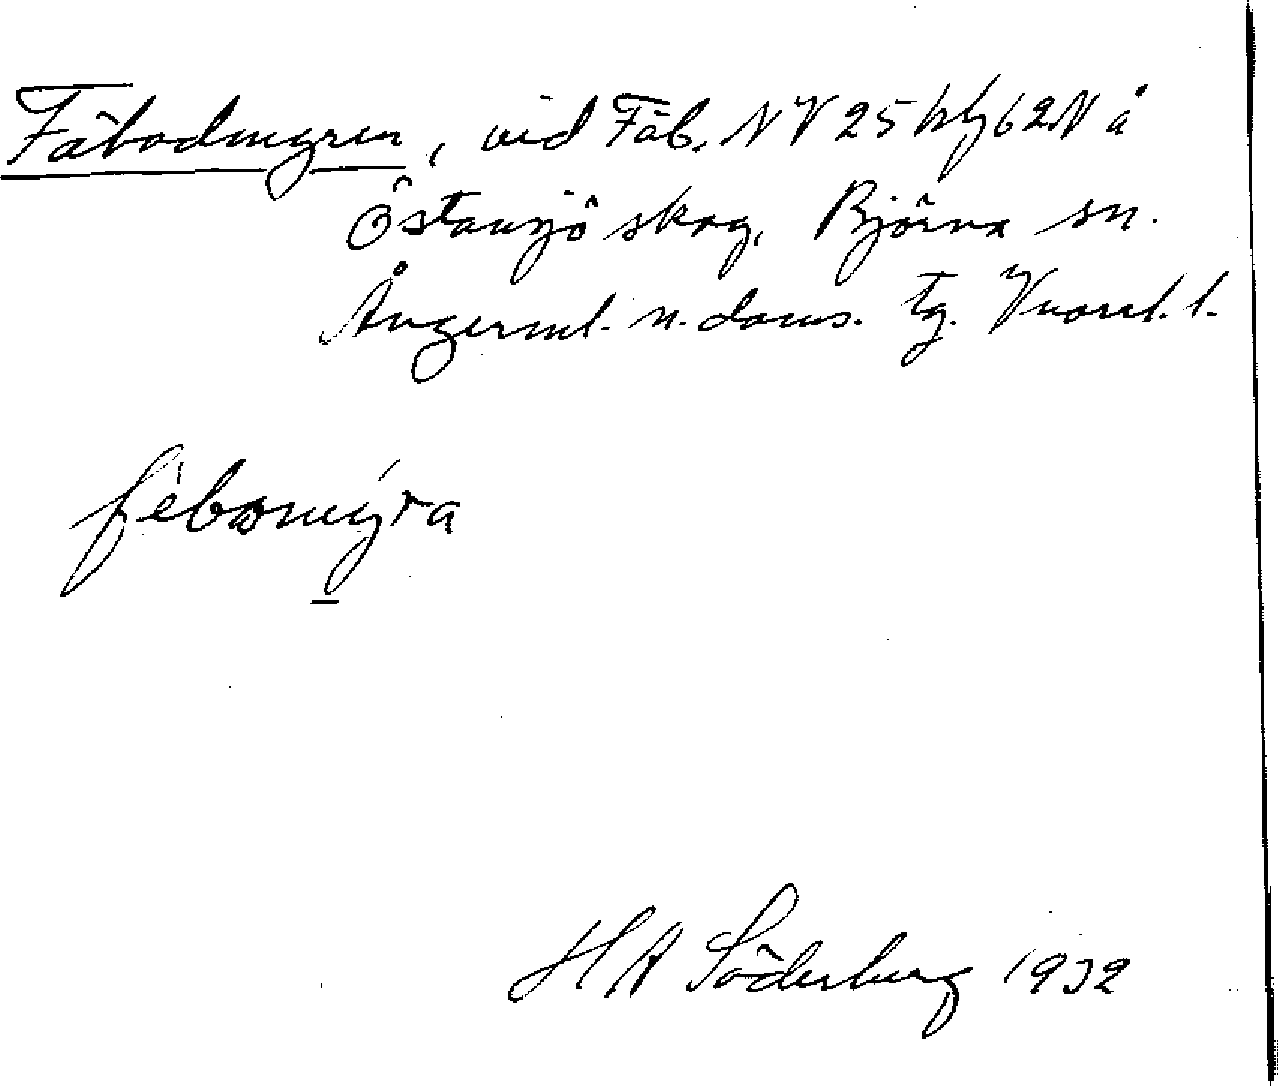 Fäbodmyren, vid Fäb. NV 25 kbf 62 N å
Östansjö skog, Björna sn.
Ångerml. n. doms. tg. Vnorrl. l.
febomýra
H A Söderberg 1932